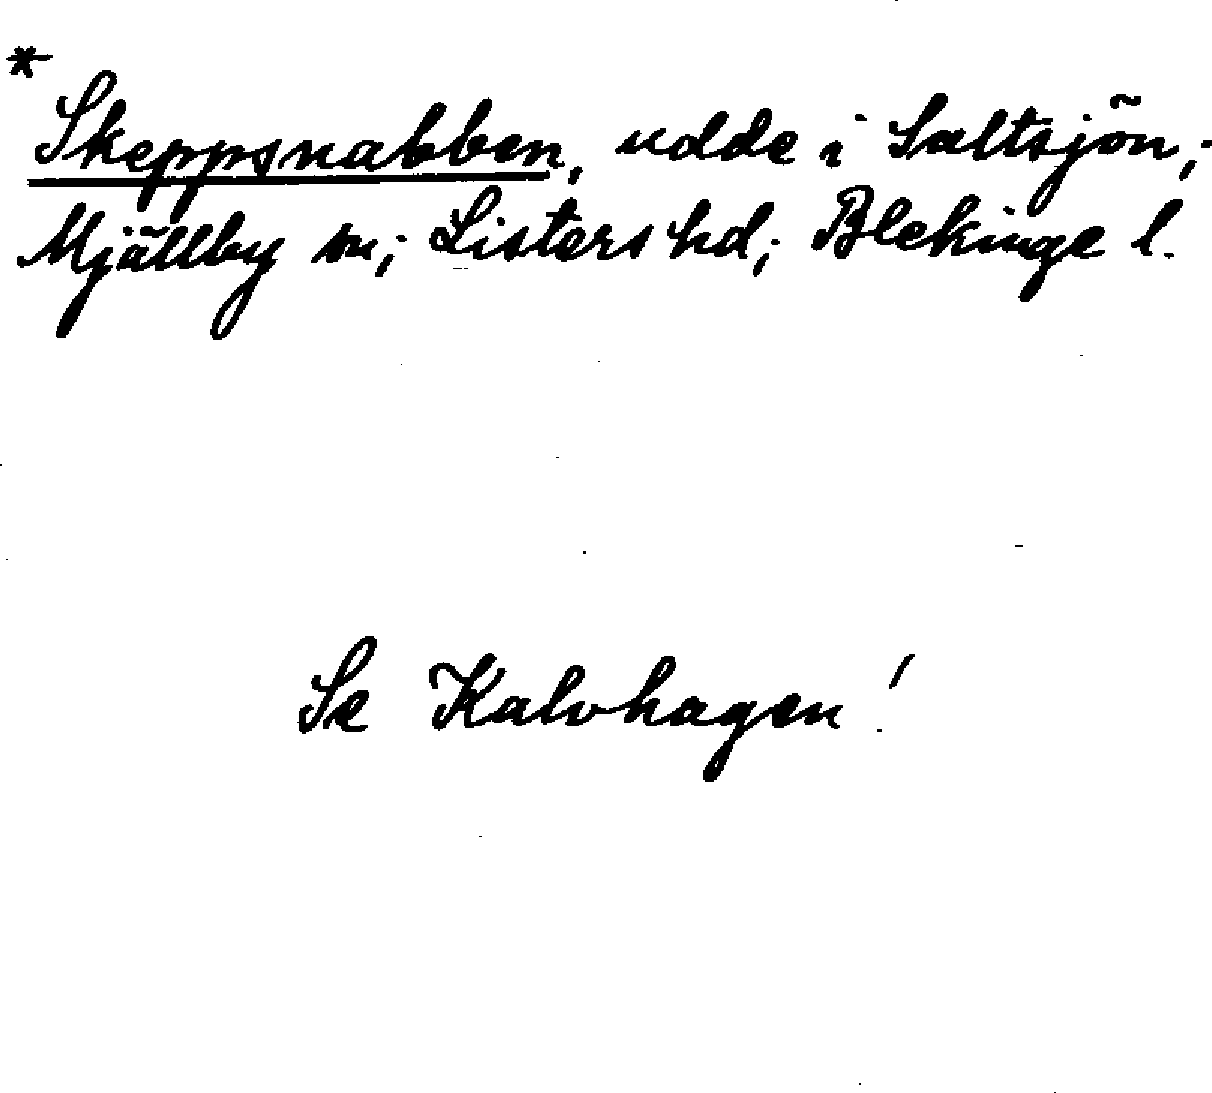 * Skeppsnabben, udde i Saltsjön;
Mjällby sn; Listers hd; Blekinge l.
Se Kalvhagen!